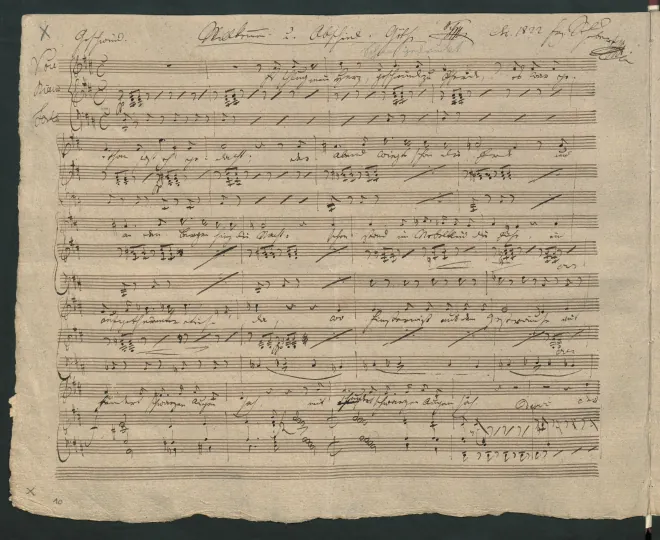 X
Geschwind. Willkomm. u. Abschied. Göthe Dec. 1822 frz. Schubert
Es schlug mein Herz, geschwind zu Pferde, es war ge-
than eh' ge-dacht. der Abend wiegte schon die Erde und
an den Bergen hing die Nacht. schon stand im Nebelkleid die Eiche ein
aufgethürmter Riese, da, wo Finsterniß aus dem Gesträuche mit
hundert schwarzen Augen sah, mit hundert schwarzen Augen sah. Der
X 10